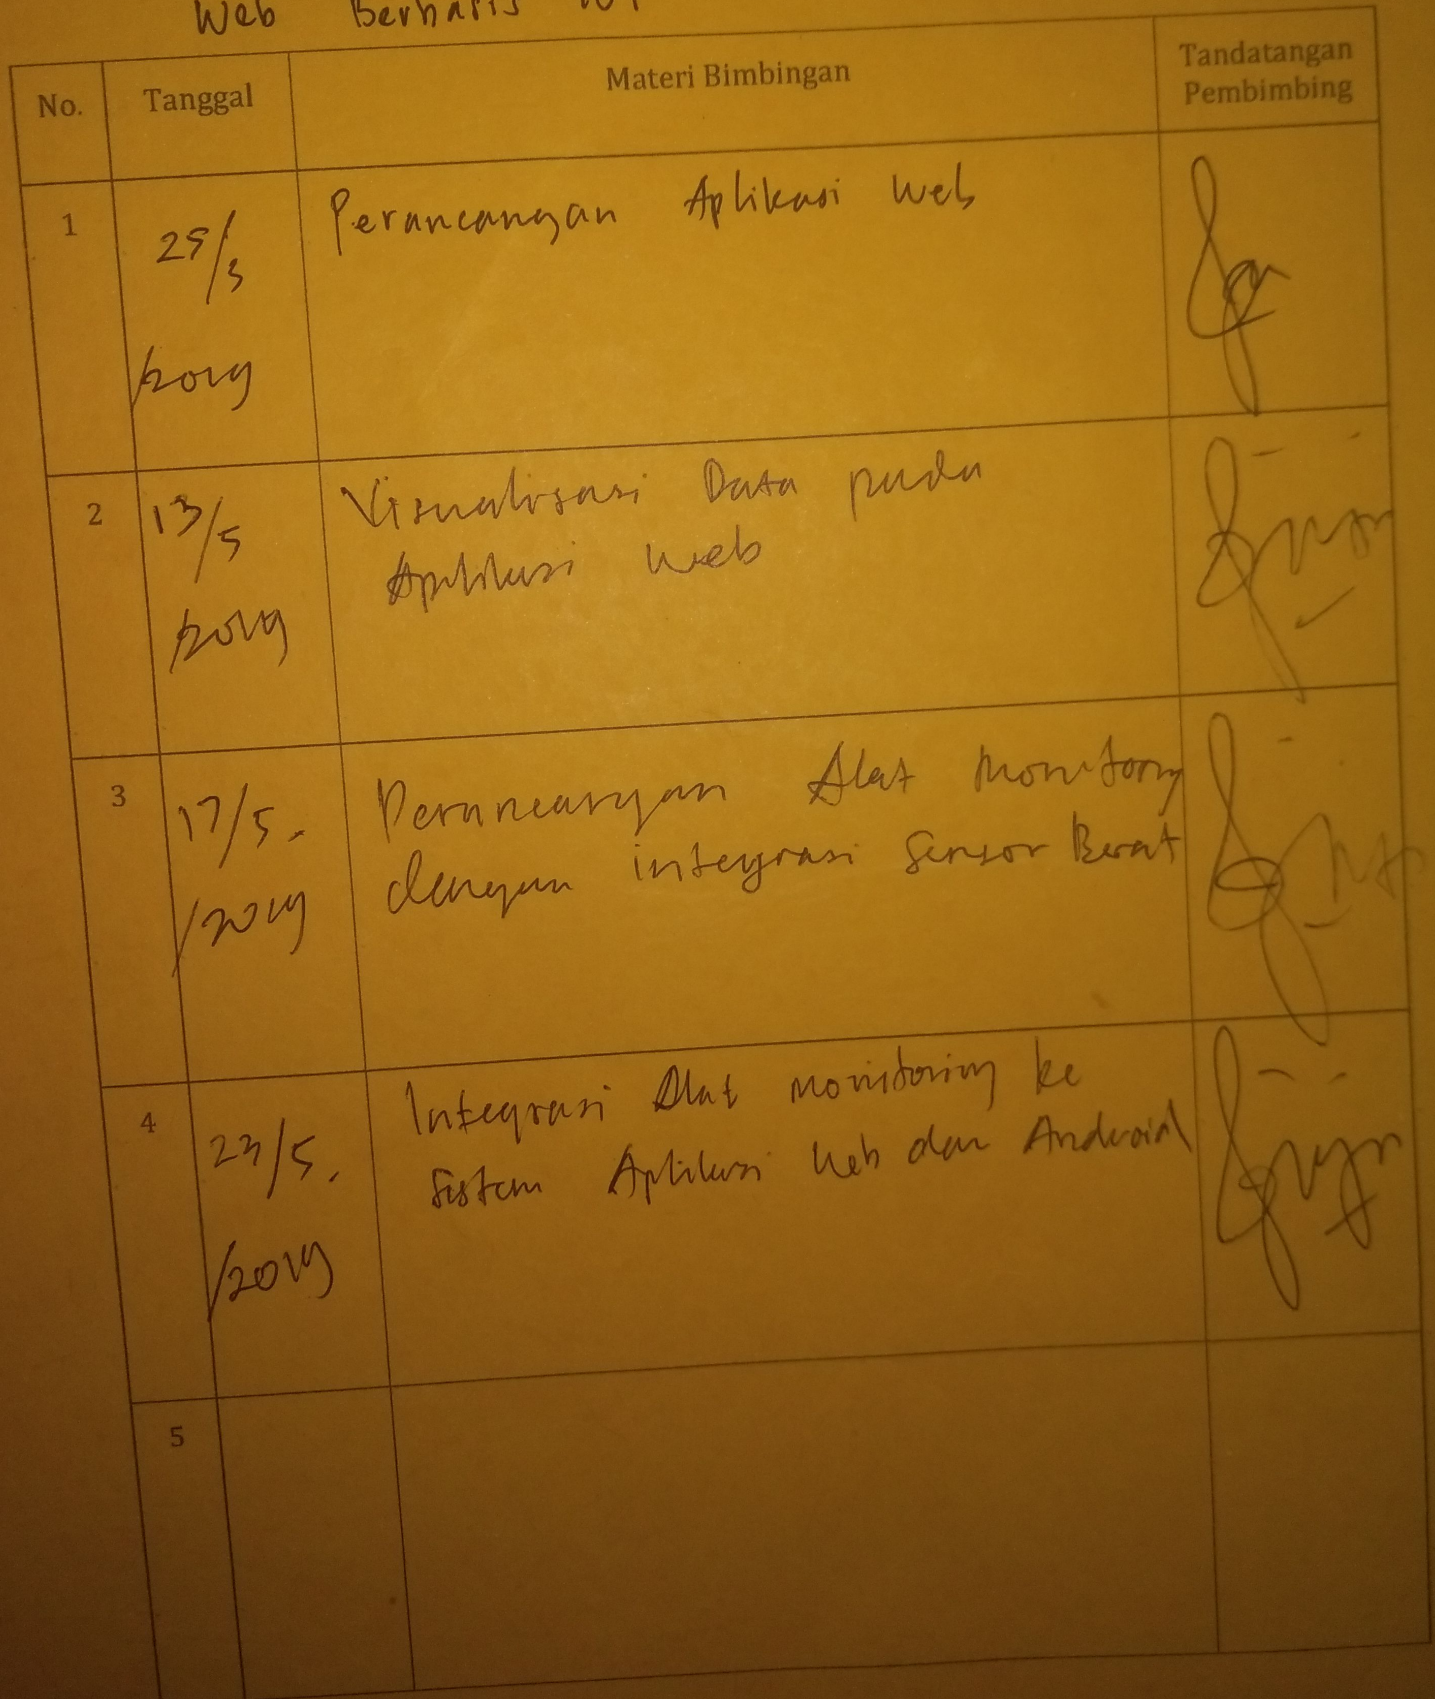 Web Berbasis
No. Tanggal Materi Bimbingan Tandatangan
Pembimbing
1 25/3 Perancangan Aplikasi Web
/2019
2 13/5 Visualisasi Data pada
Aplikasi Web
/2019
3 17/5. Perancangan Alat Monitoring
dengan integrasi Sensor Berat
/2019
4 23/5. Integrasi Alat Monitoring ke
Sistem Aplikasi Web dan Android
/2019
5